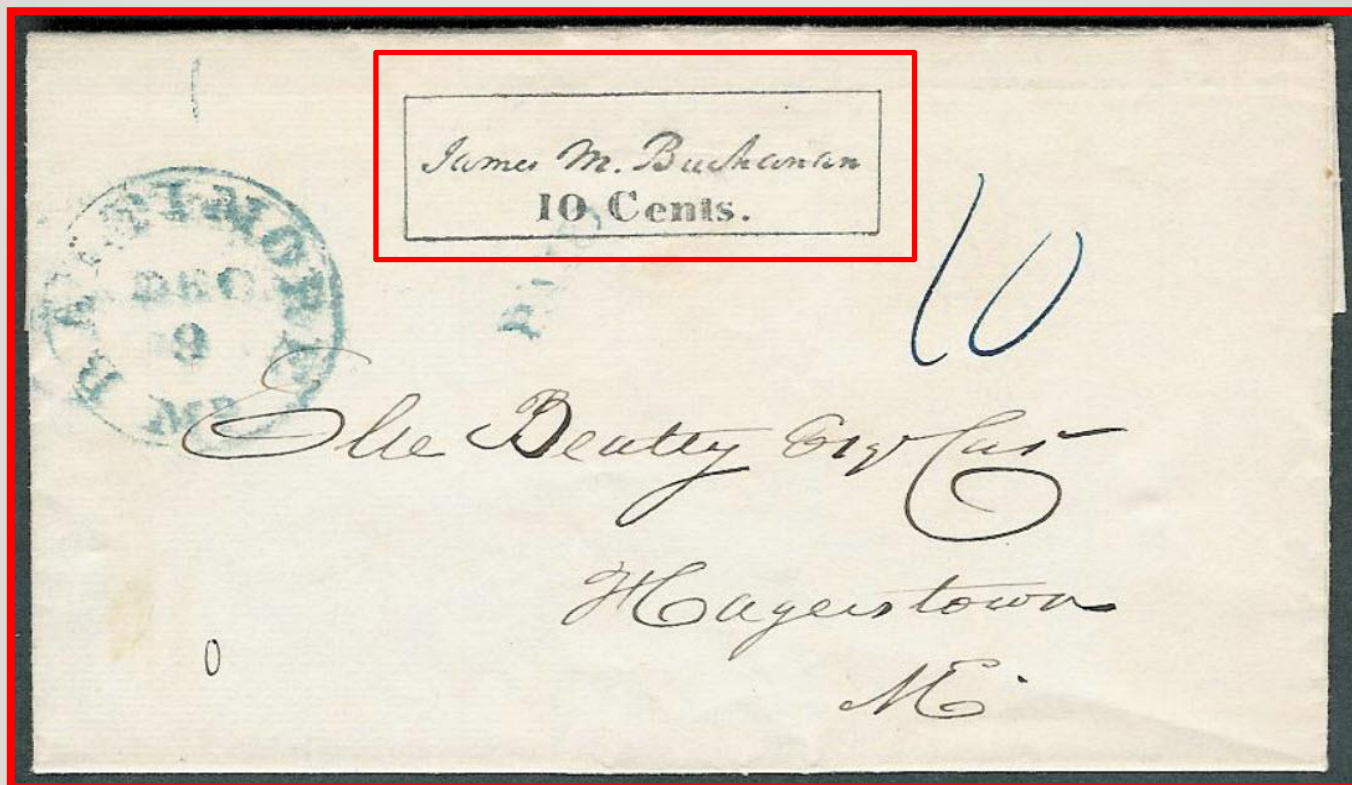 James M. Buchanan
10 Cents.
BALTIMORE Md.
DEC
9
PAID
10
Elie Beatty Esqr Cas
Hagerstown
Md